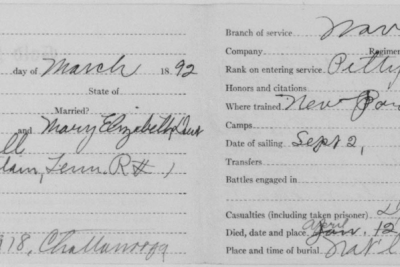 day of March 1892
State of
Married?
and Mary Elizabeth
Tenn. R#1
1918, Chattanooga
Branch of service
Company Regimen
Rank on entering service Petty
Honors and citations
Where trained New Por
Camps
Date of sailing Sept 2,
Transfers
Battles engaged in
Casualties (including taken prisoner)
Died, date and place April 12
Place and time of burial Nat'l